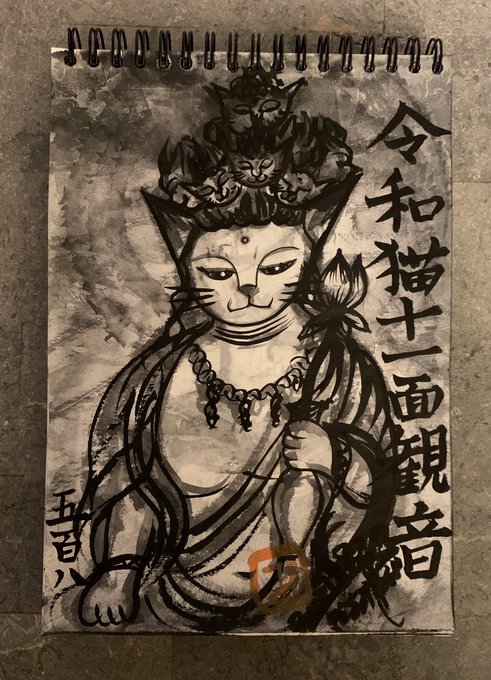 令和猫十一面観音
五百八